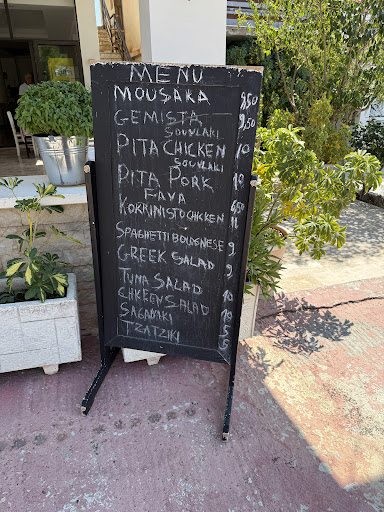 MENU
MOUSAKA 9,50
GEMISTA 9,50
SOUVLAKI
PITA CHICKEN 10
SOUVLAKI
PITA PORK 10
FAVA 6,50
KOKKINISTO CHICKEN 11
SPAGHETTI BOLOGNESE 9
GREEK SALAD 9
TUNA SALAD 10
CHICKEEN SALAD 10
SAGANAKI
TZATZIKI